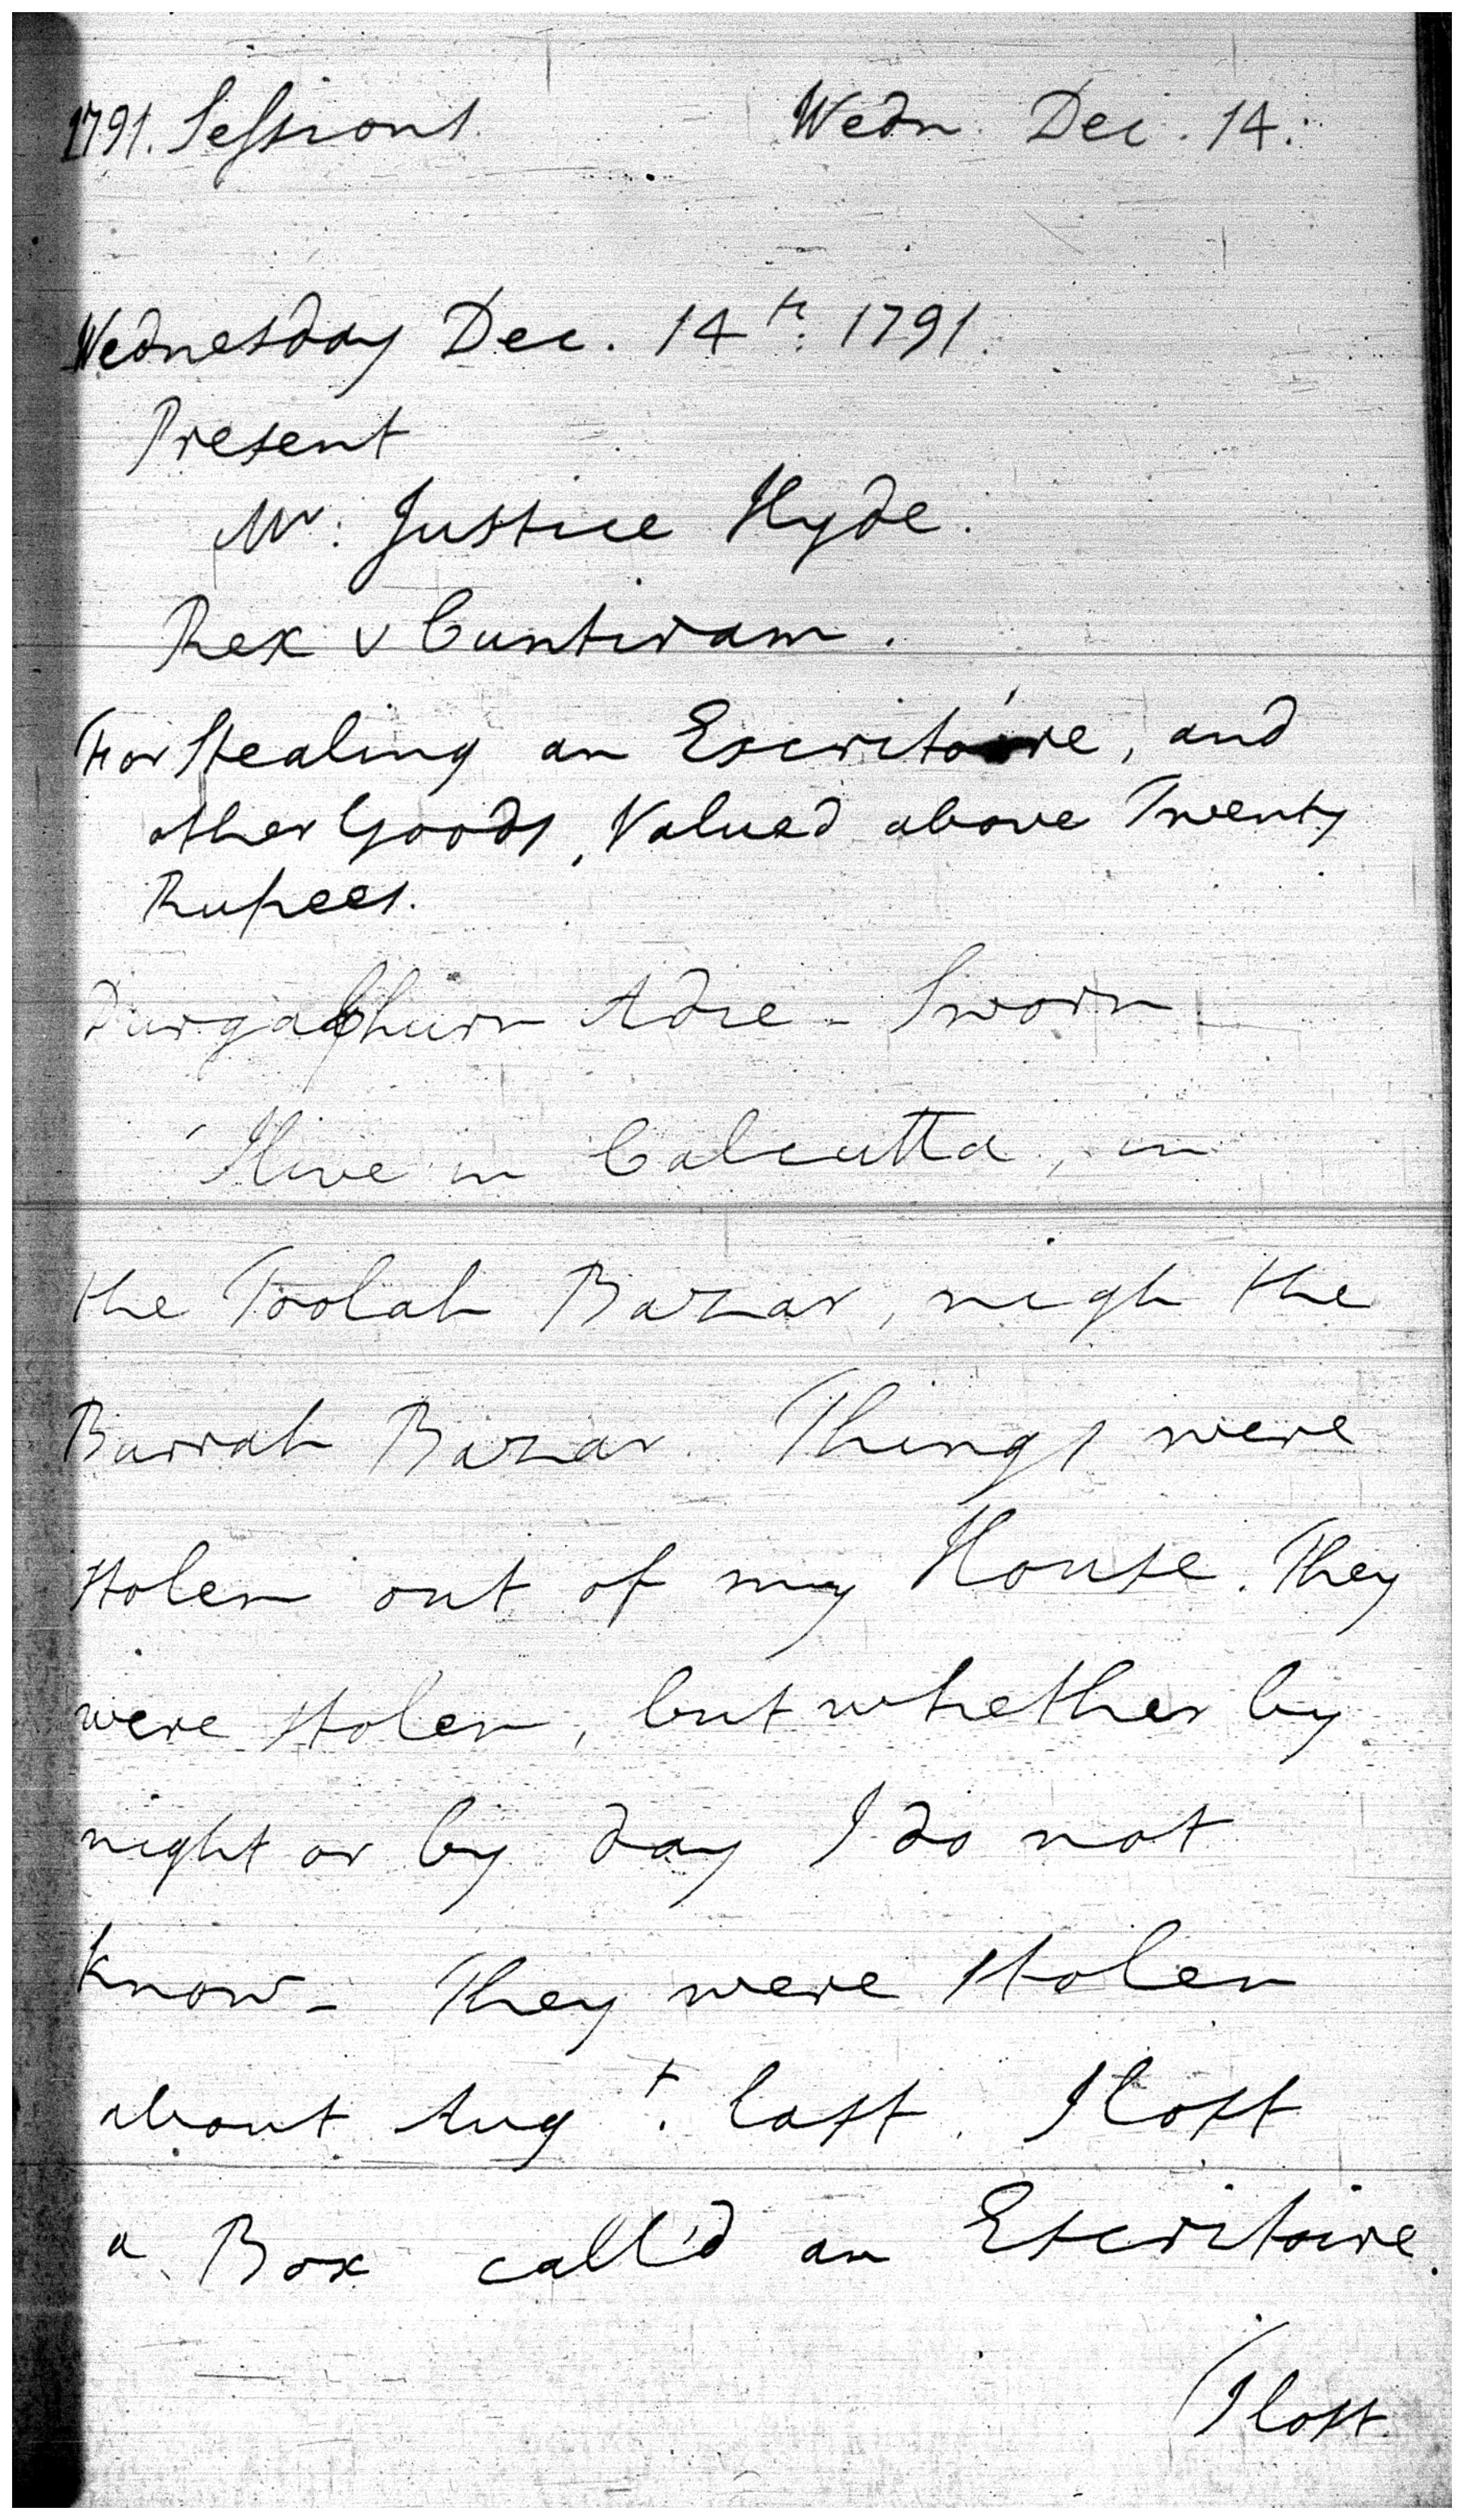 1791. Sessions. Wedn. Dec. 14.
Wednesday Dec. 14th: 1791.
Present
Mr: Justice Hyde.
Rex v Cuntiram.
For Stealing an Escritoire, and
other Goods, Valued above Twenty
Rupees.
DurgaChurn Adie - Sworn
I live in Calcutta, in
the Toolah Bazar, nigh the
Burrah Bazar. Things were
stolen out of my House. They
were stolen, but whether by
night or by day I do not
know - They were stolen
about Augt. last. I lost
a Box call'd an Escritoire.
(I lost